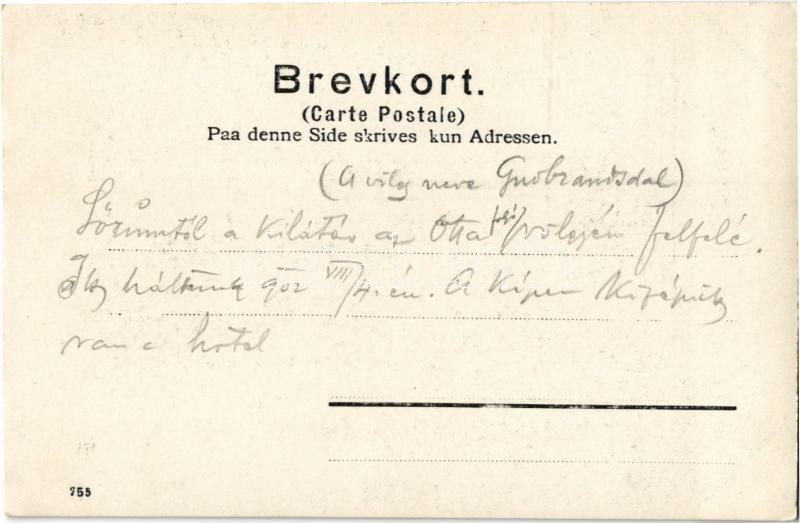 Brevkort.
(Carte Postale)
Paa denne Side skrives kun Adressen.
(A völgy neve Gudbrandsdal)
a kilátás az Otta folyó völgyén felfelé.
háltunk 902 VIII/4.én. A képen középütt
van a hotel
755